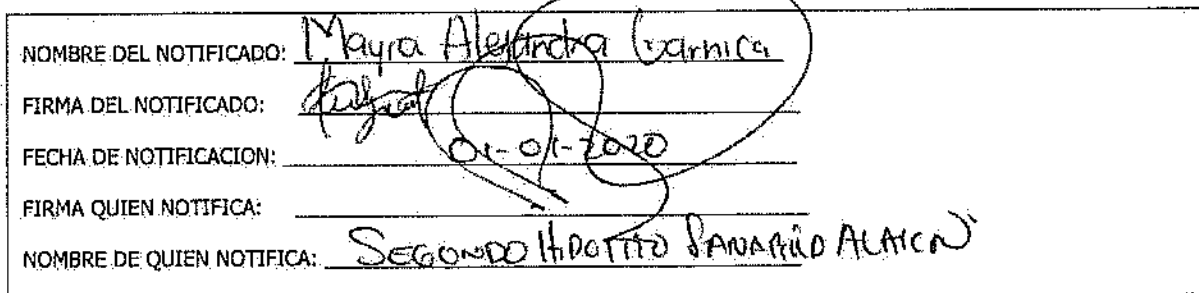 NOMBRE DEL NOTIFICADO: Mayra Alejandra Garnica
FIRMA DEL NOTIFICADO:
FECHA DE NOTIFICACION: 01-01-2020
FIRMA QUIEN NOTIFICA:
NOMBRE DE QUIEN NOTIFICA: SEGONDO